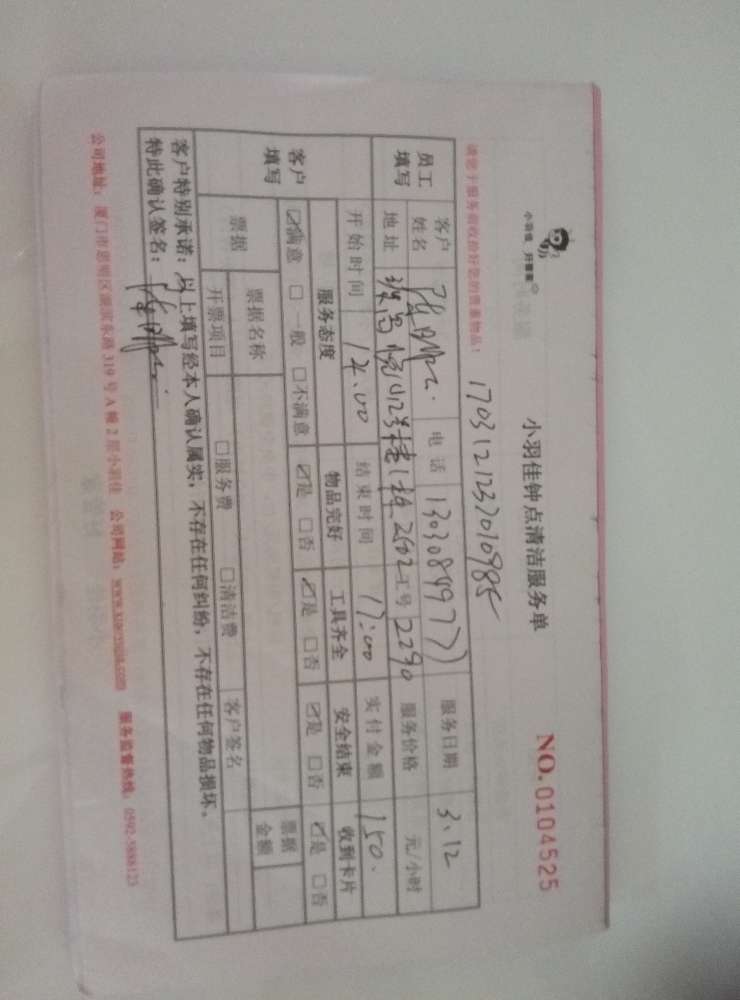 小羽佳 月嫂家
小羽佳钟点清洁服务单
NO.0104525
请您于服务前收拾好您的贵重物品!
170312123201098​5
员工填写
客户姓名
电话 13030849777
服务日期 3.12
地址
2502
工号 2290
服务价格 元/小时
开始时间 14:00
结束时间 17:00
实付金额 150.
客户填写
服务态度 物品完好 工具齐全 安全结束 收到卡片
☑满意 □一般 □不满意 ☑是 □否 ☑是 □否 ☑是 □否 ☑是 □否
票据
票据名称
票据金额
开票项目 □服务费 □清洁费 客户签名
客户特别承诺:以上填写经本人确认属实,不存在任何纠纷,不存在任何物品损坏。
特此确认签名:
公司地址:厦门市思明区湖滨东路319号A幢2层小羽佳 公司网站:www.xiaoyujia.com 服务监督热线:0592-5886123